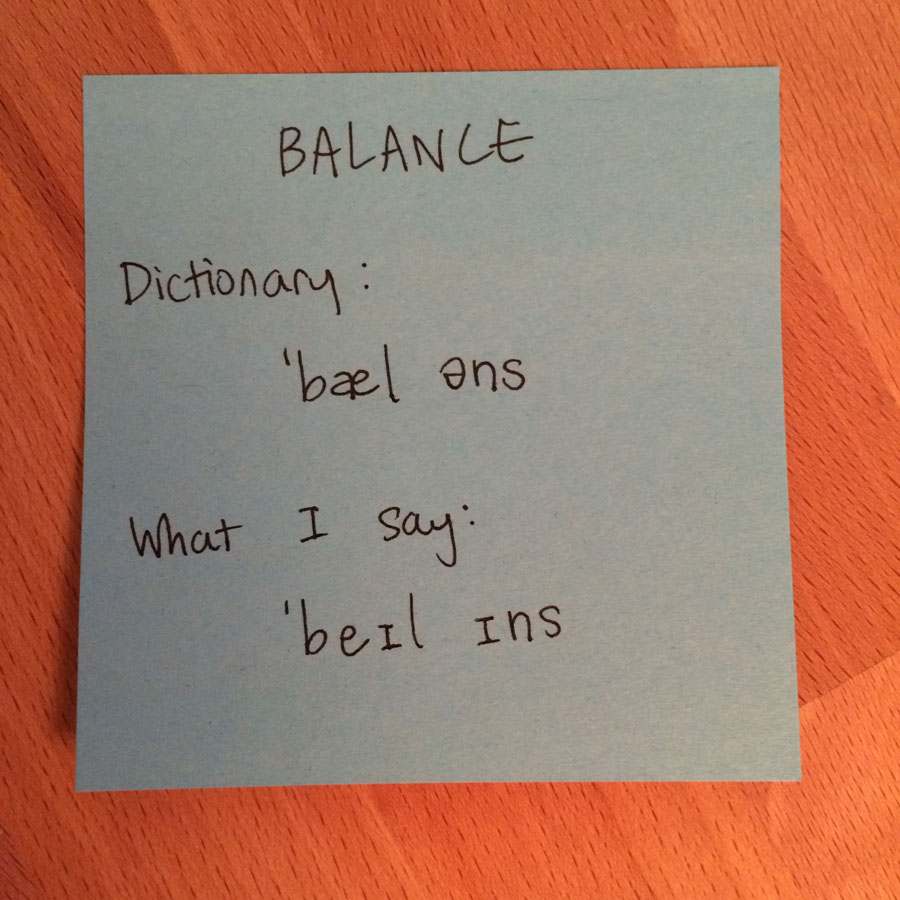 BALANCE
Dictionary:
'bæl əns
What I say:
'beɪl ɪns